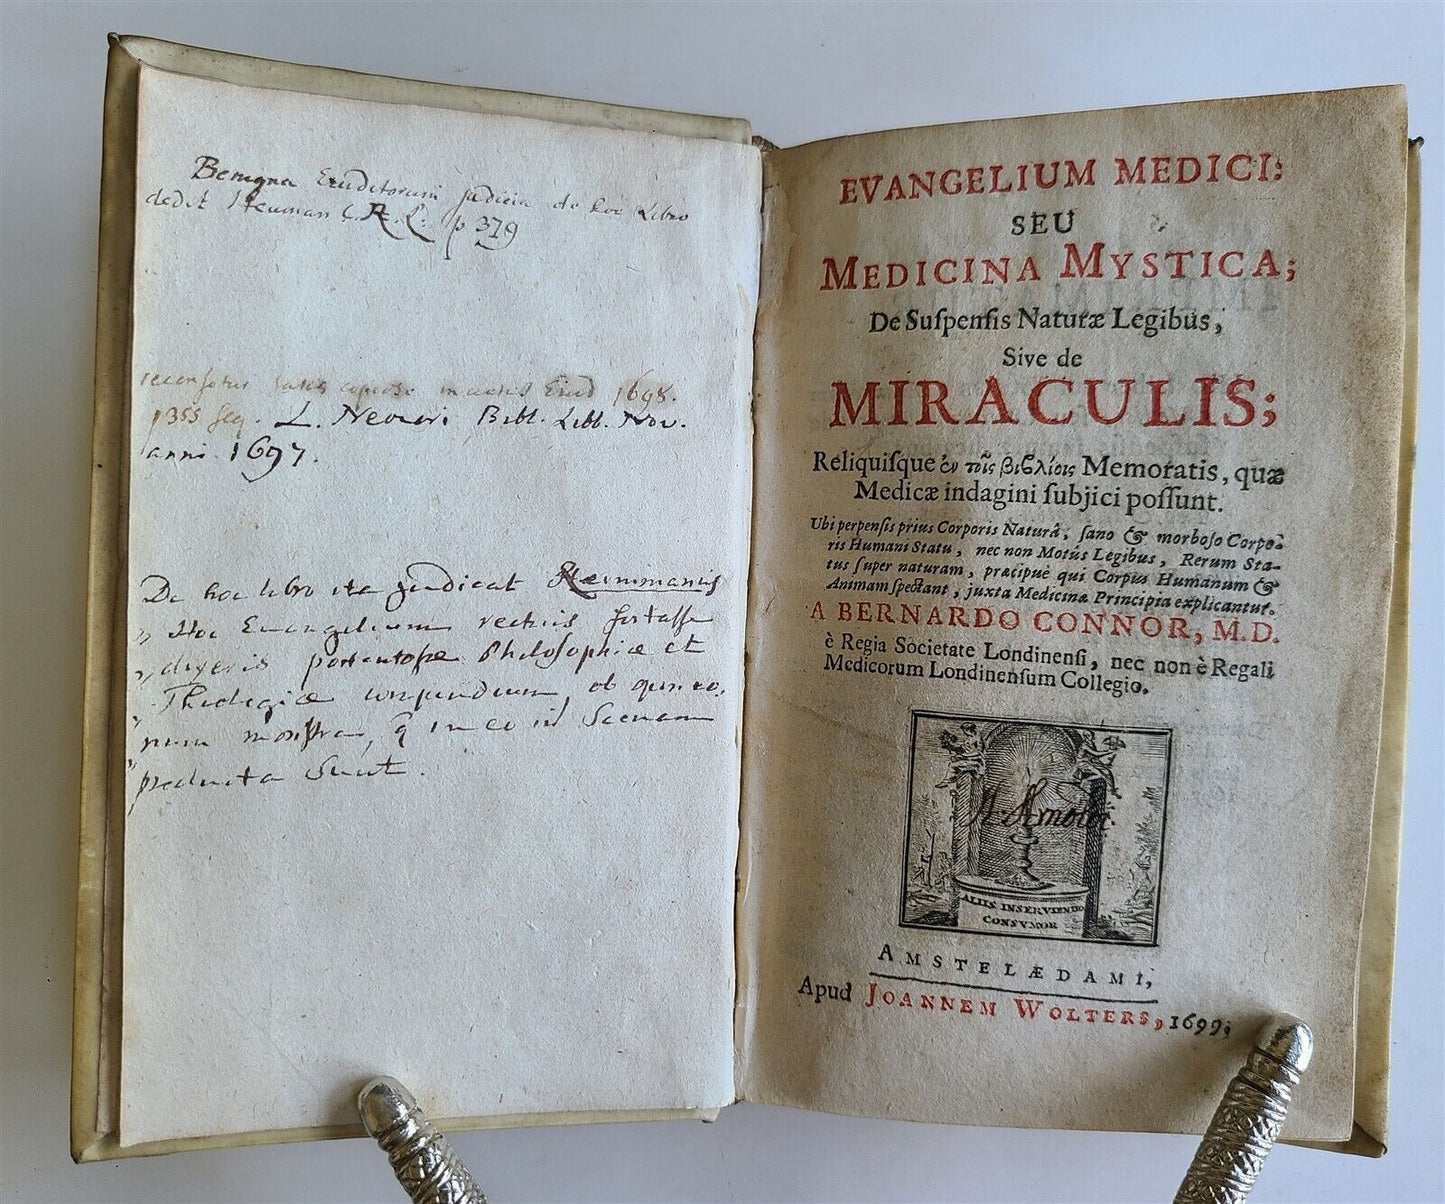 Benigna Eruditorum judicia de hoc Libro
dedit Heuman C. R. L. p 379
recensetur satis copiose in actis Erud 1698.
p 355 seq. L. Neocori Bibl. Libb. Nov.
anni 1697.
De hoc libro ita judicat Reimmannus
„ Hoc Evangelium rectius fortasse
„ dixeris portentosae Philosophiae et
„ Theologiae compendium, ob
„ num monstra, q in eo in Scenam
„ producta sunt.
EVANGELIUM MEDICI:
SEU
MEDICINA MYSTICA;
De Suſpenſis Naturæ Legibus,
Sive de
MIRACULIS;
Reliquiſque ἐν τοῖς βιβλίοις Memoratis, quæ
Medicæ indagini ſubjici poſſunt.
Ubi perpenſis prius Corporis Naturâ, ſano & morboſo Corpo-
ris Humani Statu, nec non Motûs Legibus, Rerum Sta-
tus ſuper naturam, præcipuè qui Corpus Humanum &
Animam ſpectant, juxta Medicinæ Principia explicantur.
A BERNARDO CONNOR, M.D.
è Regia Societate Londinenſi, nec non è Regali
Medicorum Londinenſum Collegio.
ALIIS INSERVIENDO
CONSVMOR
AMSTELÆDAMI,
Apud JOANNEM WOLTERS, 1699;